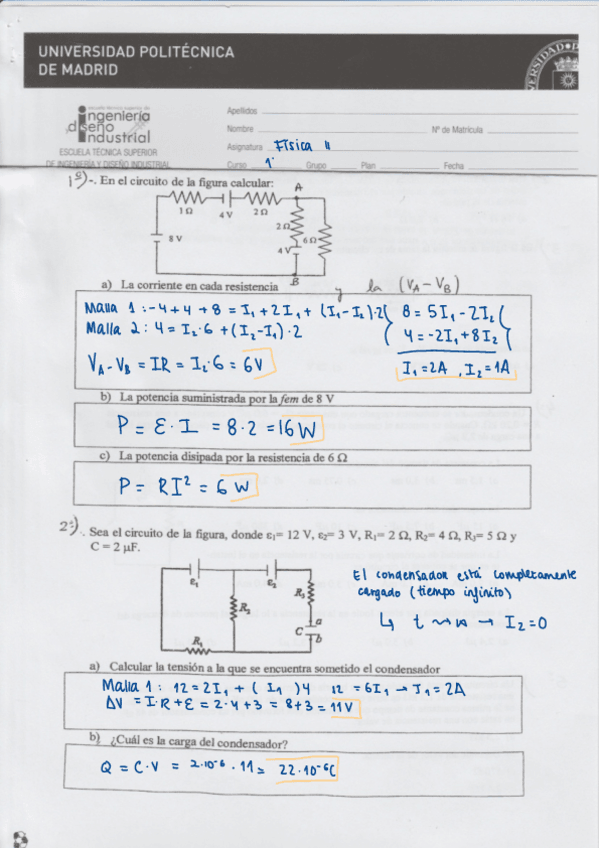 UNIVERSIDAD POLITÉCNICA
DE MADRID
ingeniería
diseño
industrial
ESCUELA TÉCNICA SUPERIOR
DE INGENIERÍA Y DISEÑO INDUSTRIAL
Apellidos
Nombre Nº de Matrícula
Asignatura Física II
Curso 1º Grupo Plan Fecha
1º)-. En el circuito de la figura calcular:
A
1 Ω 4 V 2 Ω
2 Ω
8 V 6 Ω
4 V
B
a) La corriente en cada resistencia y la (VA - VB)
Malla 1: -4 + 4 + 8 = I1 + 2I1 + (I1 - I2)·2 8 = 5I1 - 2I2
Malla 2: 4 = I2·6 + (I2 - I1)·2 4 = -2I1 + 8I2
VA - VB = IR = I2·6 = 6V I1 = 2A , I2 = 1A
b) La potencia suministrada por la fem de 8 V
P = ε·I = 8·2 = 16 W
c) La potencia disipada por la resistencia de 6 Ω
P = RI² = 6 W
2º) . Sea el circuito de la figura, donde ε1= 12 V, ε2= 3 V, R1= 2 Ω, R2= 4 Ω, R3= 5 Ω y
C = 2 μF.
ε1 ε2 R3
R2
a
C
b
R1
El condensador está completamente
cargado (tiempo infinito)
↳ t ⇝ ∞ → I2 = 0
a) Calcular la tensión a la que se encuentra sometido el condensador
Malla 1: 12 = 2I1 + ( I1 )4 12 = 6I1 → I1 = 2A
ΔV = I·R + ε = 2·4 + 3 = 8 + 3 = 11V
b) ¿Cuál es la carga del condensador?
Q = C·V = 2·10⁻⁶ · 11 = 22·10⁻⁶C